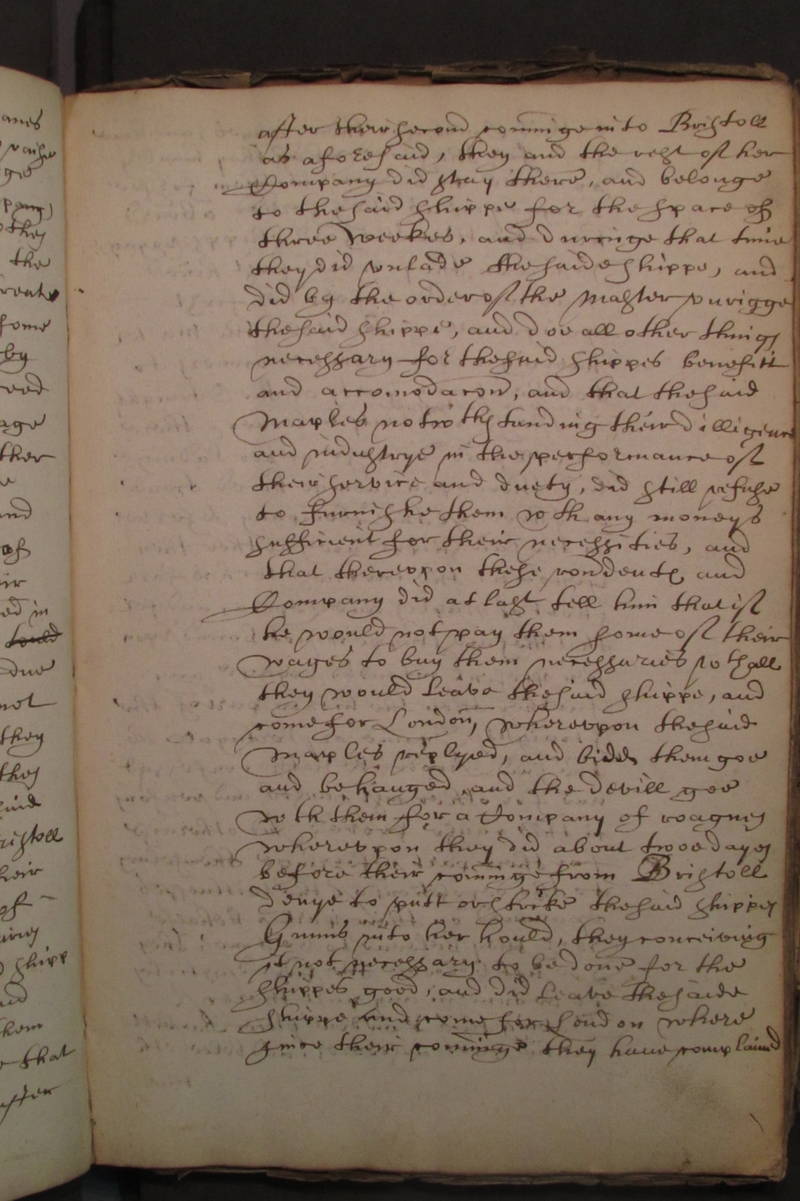 anes
ge
they
the
some
by
eed
age
ther
e
and
of
ir
ed in
could
due
not
they
they
said
Bristoll
their
of
shipp
and
them
e that
after
after their second comminge into Bristoll
as aforesaid, they and the rest of her
Company did stay there, and belonge
to the said shippe for the space of
three weekes, and durringe that time
they did unlade the saide shippe, and
did by the order of the Master unrigge
the said shippe, and doe all other things
necessary for the said shippes benefitt
and accomodacon, and that the said
Maples notwthstanding their dilligence
and industrye in the performance of
their service and duety, did still refuse
to furnishe them wth any moneys
sufficient for their necessities, and
that thereupon these rondents and
Company did at last tell him that if
he would not pay them some of their
wages to buy them necessaries wthall
they would leave the said shippe, and
come for London, whereupon the said
Maples replyed, and bidd them goe
and be hanged and the devill goe
wth them for a Company of roagues
whereupon they did about twoe dayes
before their comminge from Bristoll
denye to putt or strike the said shippes
Gunns into her hould, they conceiving
it not necessary to be done for the
shippes good, and did leave the saide
shippe and come for London where
since their comminge they have complained